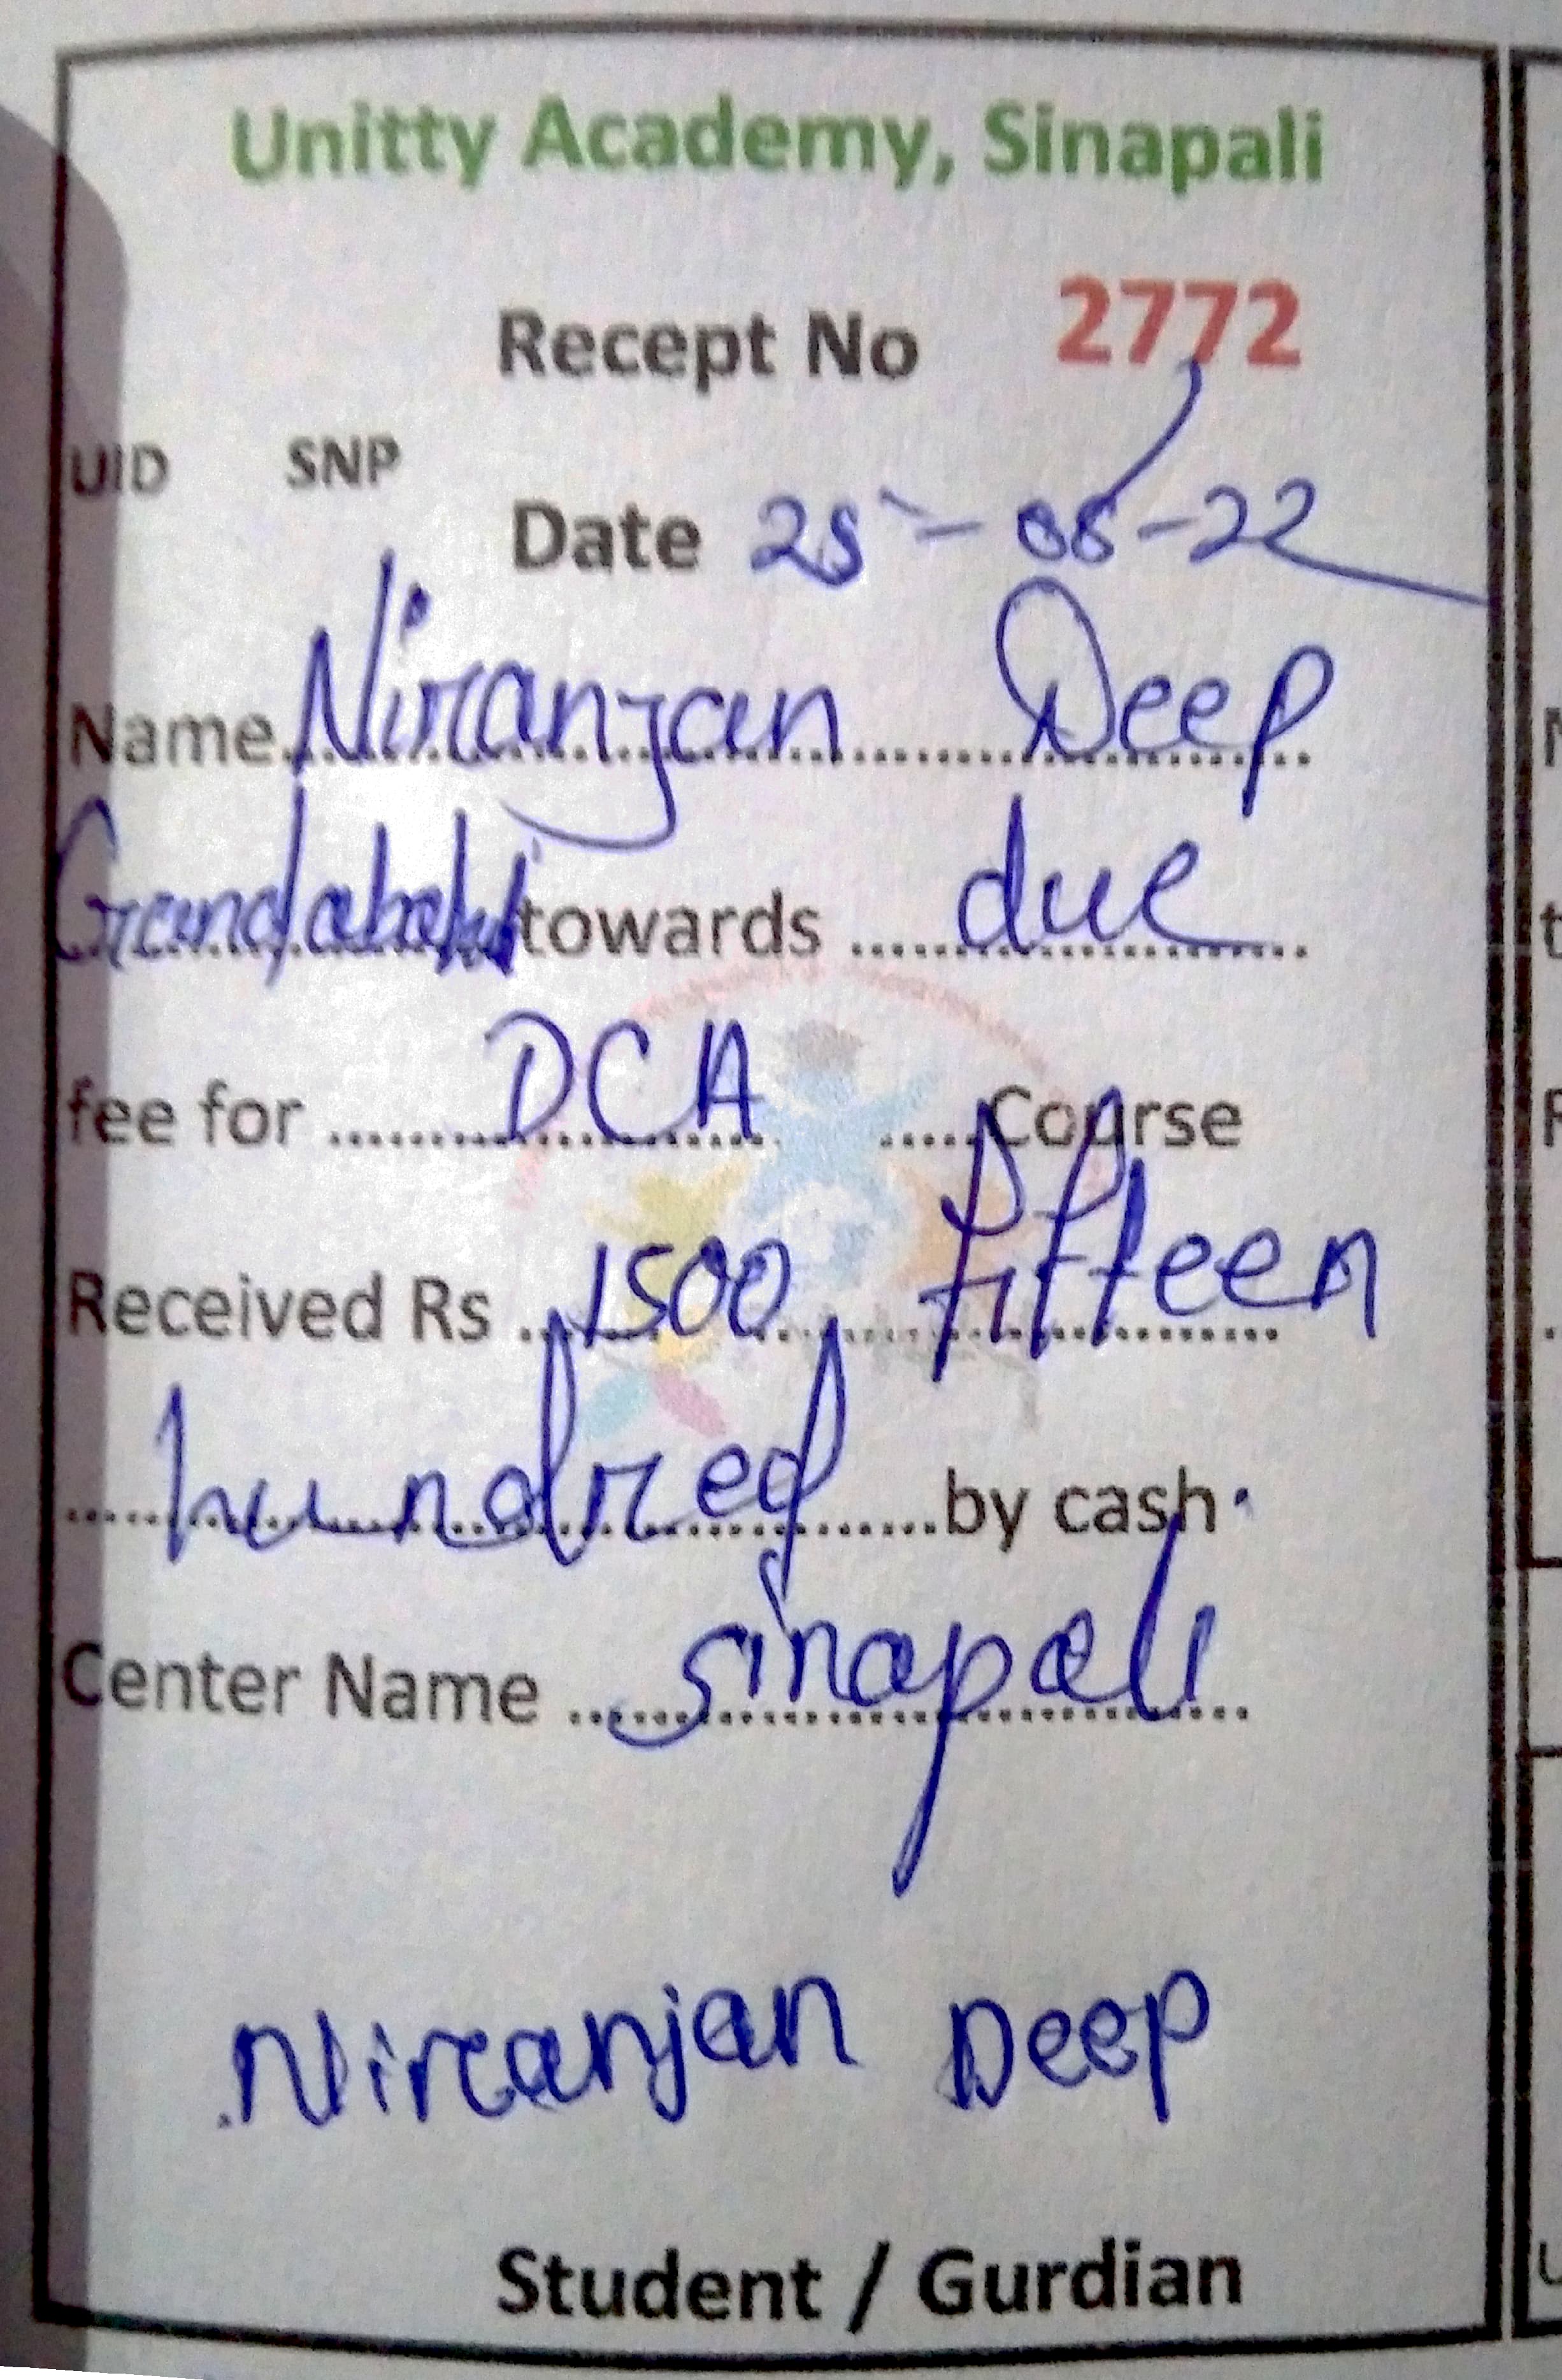 Unitty Academy, Sinapali
Recept No 2772
UID SNP
Date 25-08-22
Name Niranjan Deep
towards due
fee for DCA Course
Received Rs 1500 fifteen
hundred by cash
Center Name Sinapali
Niranjan Deep
Student / Gurdian